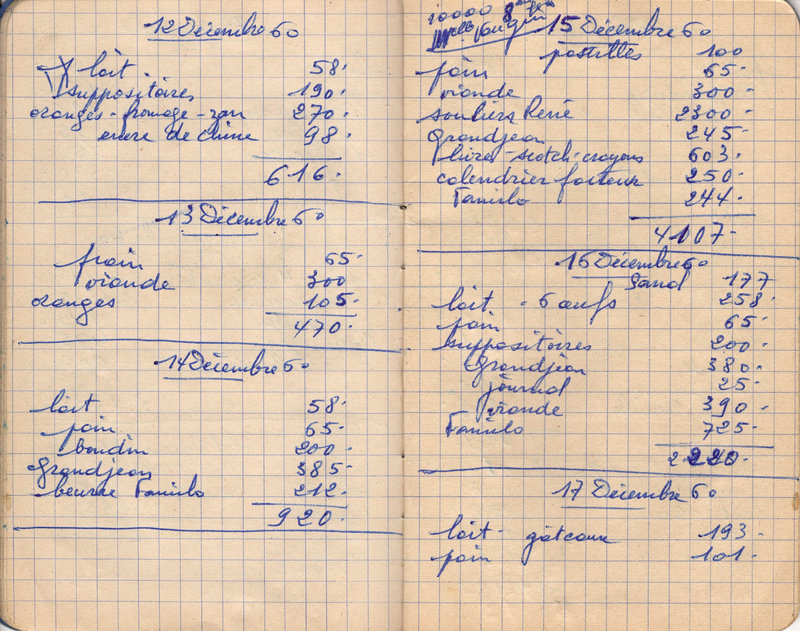 12 Décembre 60
lait 58.
suppositoires 190.
oranges - fromage - zan 270.
encre de chine 98.
616.
13 Décembre 60
pain 65.
viande 300
oranges 105.
470.
14 Décembre 60
lait 58.
pain 65.
boudin 200
Grandjean 385
beurre Familo 212.
920.
10000
15 Décembre 60
pastilles 100
pain 65.
viande 300.
souliers René 2300.
Grandjean 245.
livres - scotch - crayons 603.
calendrier facteur 250.
Familo 244.
4107.
16 Décembre 60
177
lait - 6 œufs 258.
pain 65.
suppositoires 200.
Grandjean 380.
journal 25.
viande 390.
Familo 725.
2220.
17 Décembre 60
lait - gâteaux 193.
pain 101.